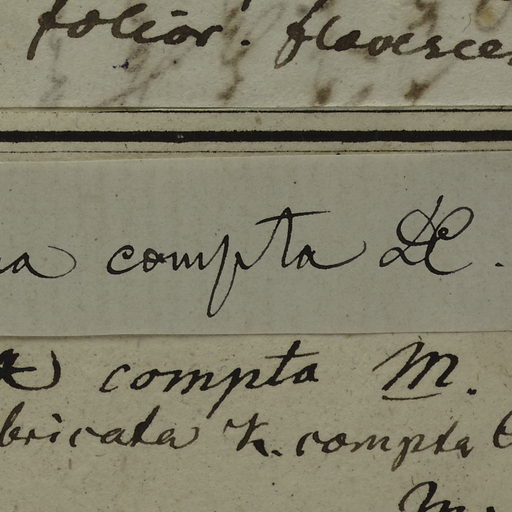 folior. flavesce
a compta DC.
compta M.
bricata K. compta
M.